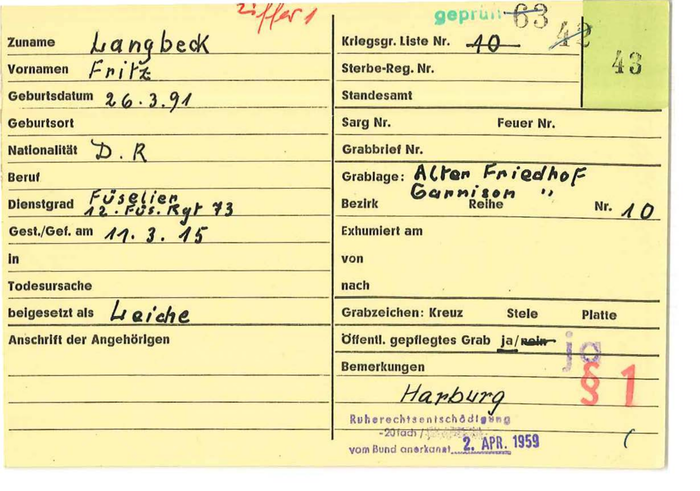 Ziffer 1
geprüft 63
42
43
Zuname Langbeck
Vornamen Fritz
Geburtsdatum 26.3.91
Geburtsort
Nationalität D.R
Beruf
Dienstgrad Füselier
12. Füs. Rgt 73
Gest./Gef. am 11.3.15
in
Todesursache
beigesetzt als Leiche
Anschrift der Angehörigen
Kriegsgr. Liste Nr. 10
Sterbe-Reg. Nr.
Standesamt
Sarg Nr. Feuer Nr.
Grabbrief Nr.
Grablage: Alter Friedhof
Garnison "
Bezirk Reihe Nr. 10
Exhumiert am
von
nach
Grabzeichen: Kreuz Stele Platte
Öffentl. gepflegtes Grab ja/nein ja
Bemerkungen § 1
Harburg
Ruherechtsentschädigung
-20fach/
vom Bund anerkannt 2. APR. 1959